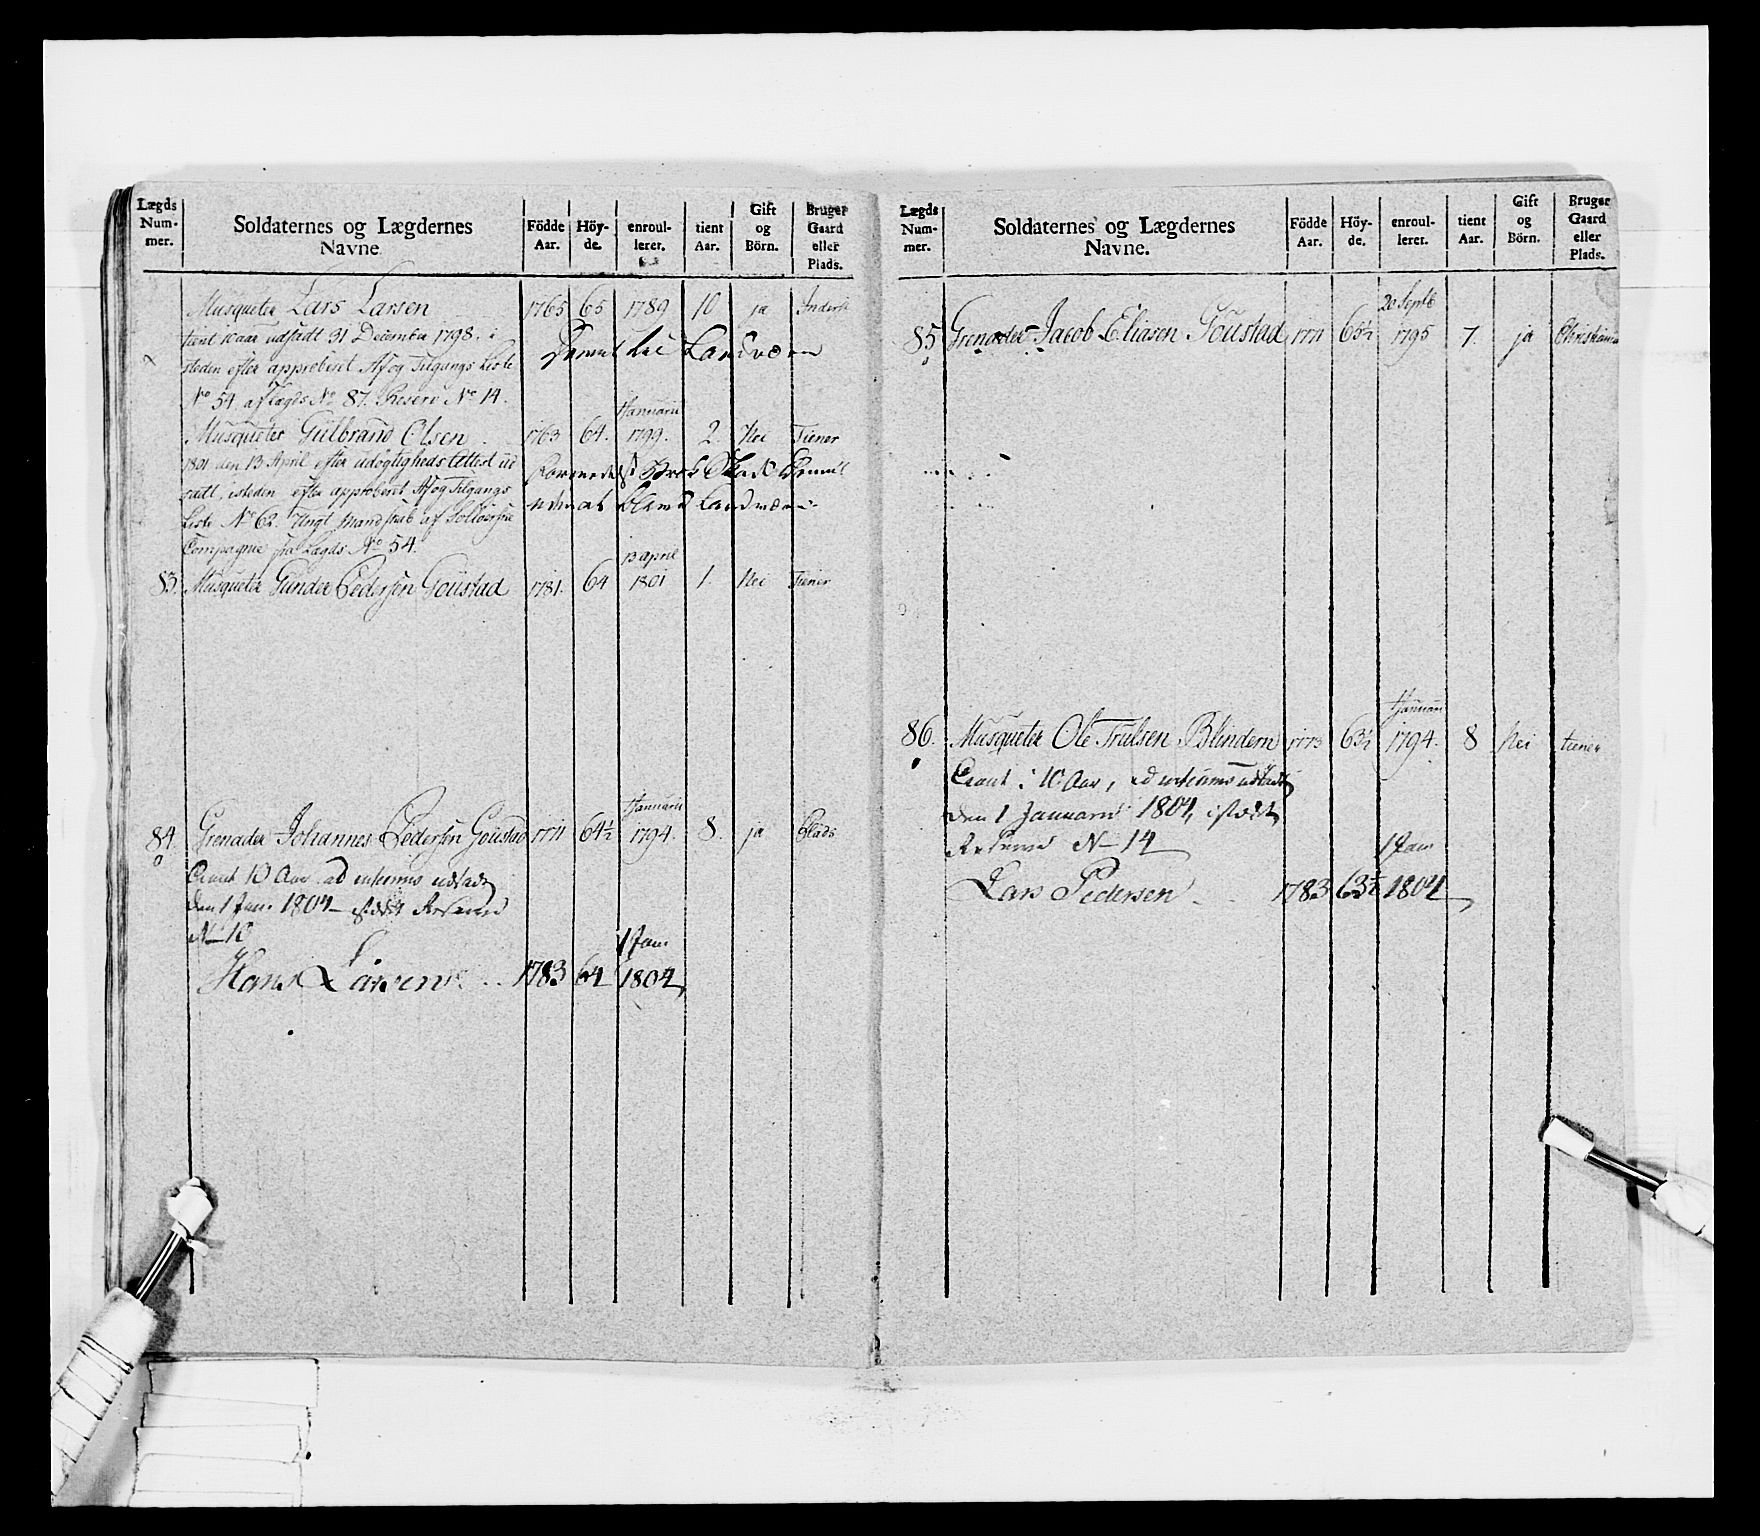 Lægds Num-mer. Soldaternes og Lægdernes Navne. Födde Aar. Höy-de. enroul-leret. tient Aar. Gift og Börn. Bruger Gaard eller Plads.
Musqueter Lars Larsen 1765 65 1789 10 ja Inderst
tient 10 aar udsadt 31 December 1798. i
steden efter approberet Af og Tilgangs Liste
No 54 af Lægds No 87. Reserv No 14.
1 Januarii
Musqueter Gulbrand Olsen 1763 64. 1799. 2. Nei Tiener
1801 den 13 April efter udögtigheds Attest ud
sadt, isteden efter approberet Af og Tilgangs
Liste No 62. Ungt Mandskab af
Compagnie fra Lægds No 54.
13 April
83. Musqueter Gunder Pedersen Goustad 1781. 64 1801 1. Nei Tiener
1 Januarii
84. Grenader Johannes Pedersen Goustad 1771 64½ 1794. 8. ja Plads
10 Aar ad interims udsadt
den 1 Jan. 1804 istedet Reserve
N 10
1 Jan
Hans Larsen 1783 64 1804
Lægds Num-mer. Soldaternes og Lægdernes Navne. Födde Aar. Höy-de. enroul-leret. tient Aar. Gift og Börn. Bruger Gaard eller Plads.
20 Septb
85 Grenader Jacob Eliasen Goustad 1771 65½ 1795 7. ja Christiania
1 Januarii
86. Musqueter Ole Trulsen Blindern 1773 63½ 1794. 8 Nei tiener
10 Aar, ad interims udsadt
den 1 Januarii 1804, istedet
Reserve N 14
1 Jan
Lars Pedersen 1783 63½ 1804